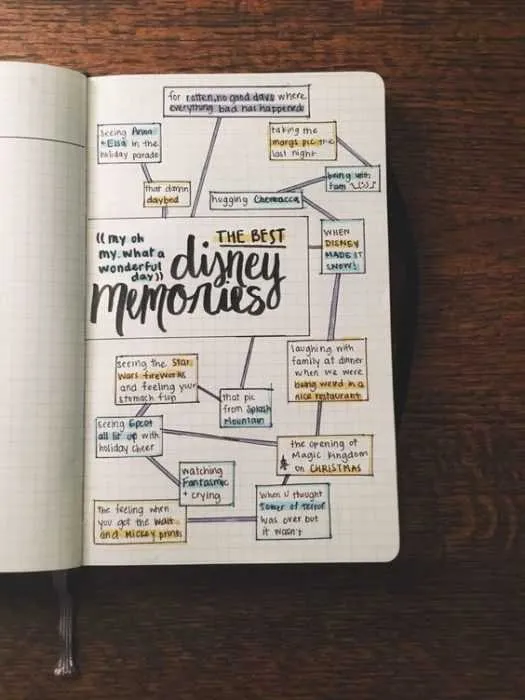 for rotten, no good days where
everything bad has happened
seeing Anna
+ Elsa in the
holiday parade
taking the
margs pic the
last night
that damn
daybed
being with
fam
hugging Chewbacca
((my oh
my, what a
wonderful
day))
THE BEST
disney
memories
WHEN
DISNEY
MADE IT
SNOW!
seeing the Star
Wars fireworks
and feeling your
stomach flip
laughing with
family at dinner
when we were
being weird in a
nice restaurant
that pic
from Splash
Mountain
seeing Epcot
all lit up with
holiday cheer
the opening of
Magic Kingdom
on CHRISTMAS
watching
Fantasmic
+ crying
the feeling when
you got the
and Mickey prints
when u thought
tower of terror
was over but
it wasn't